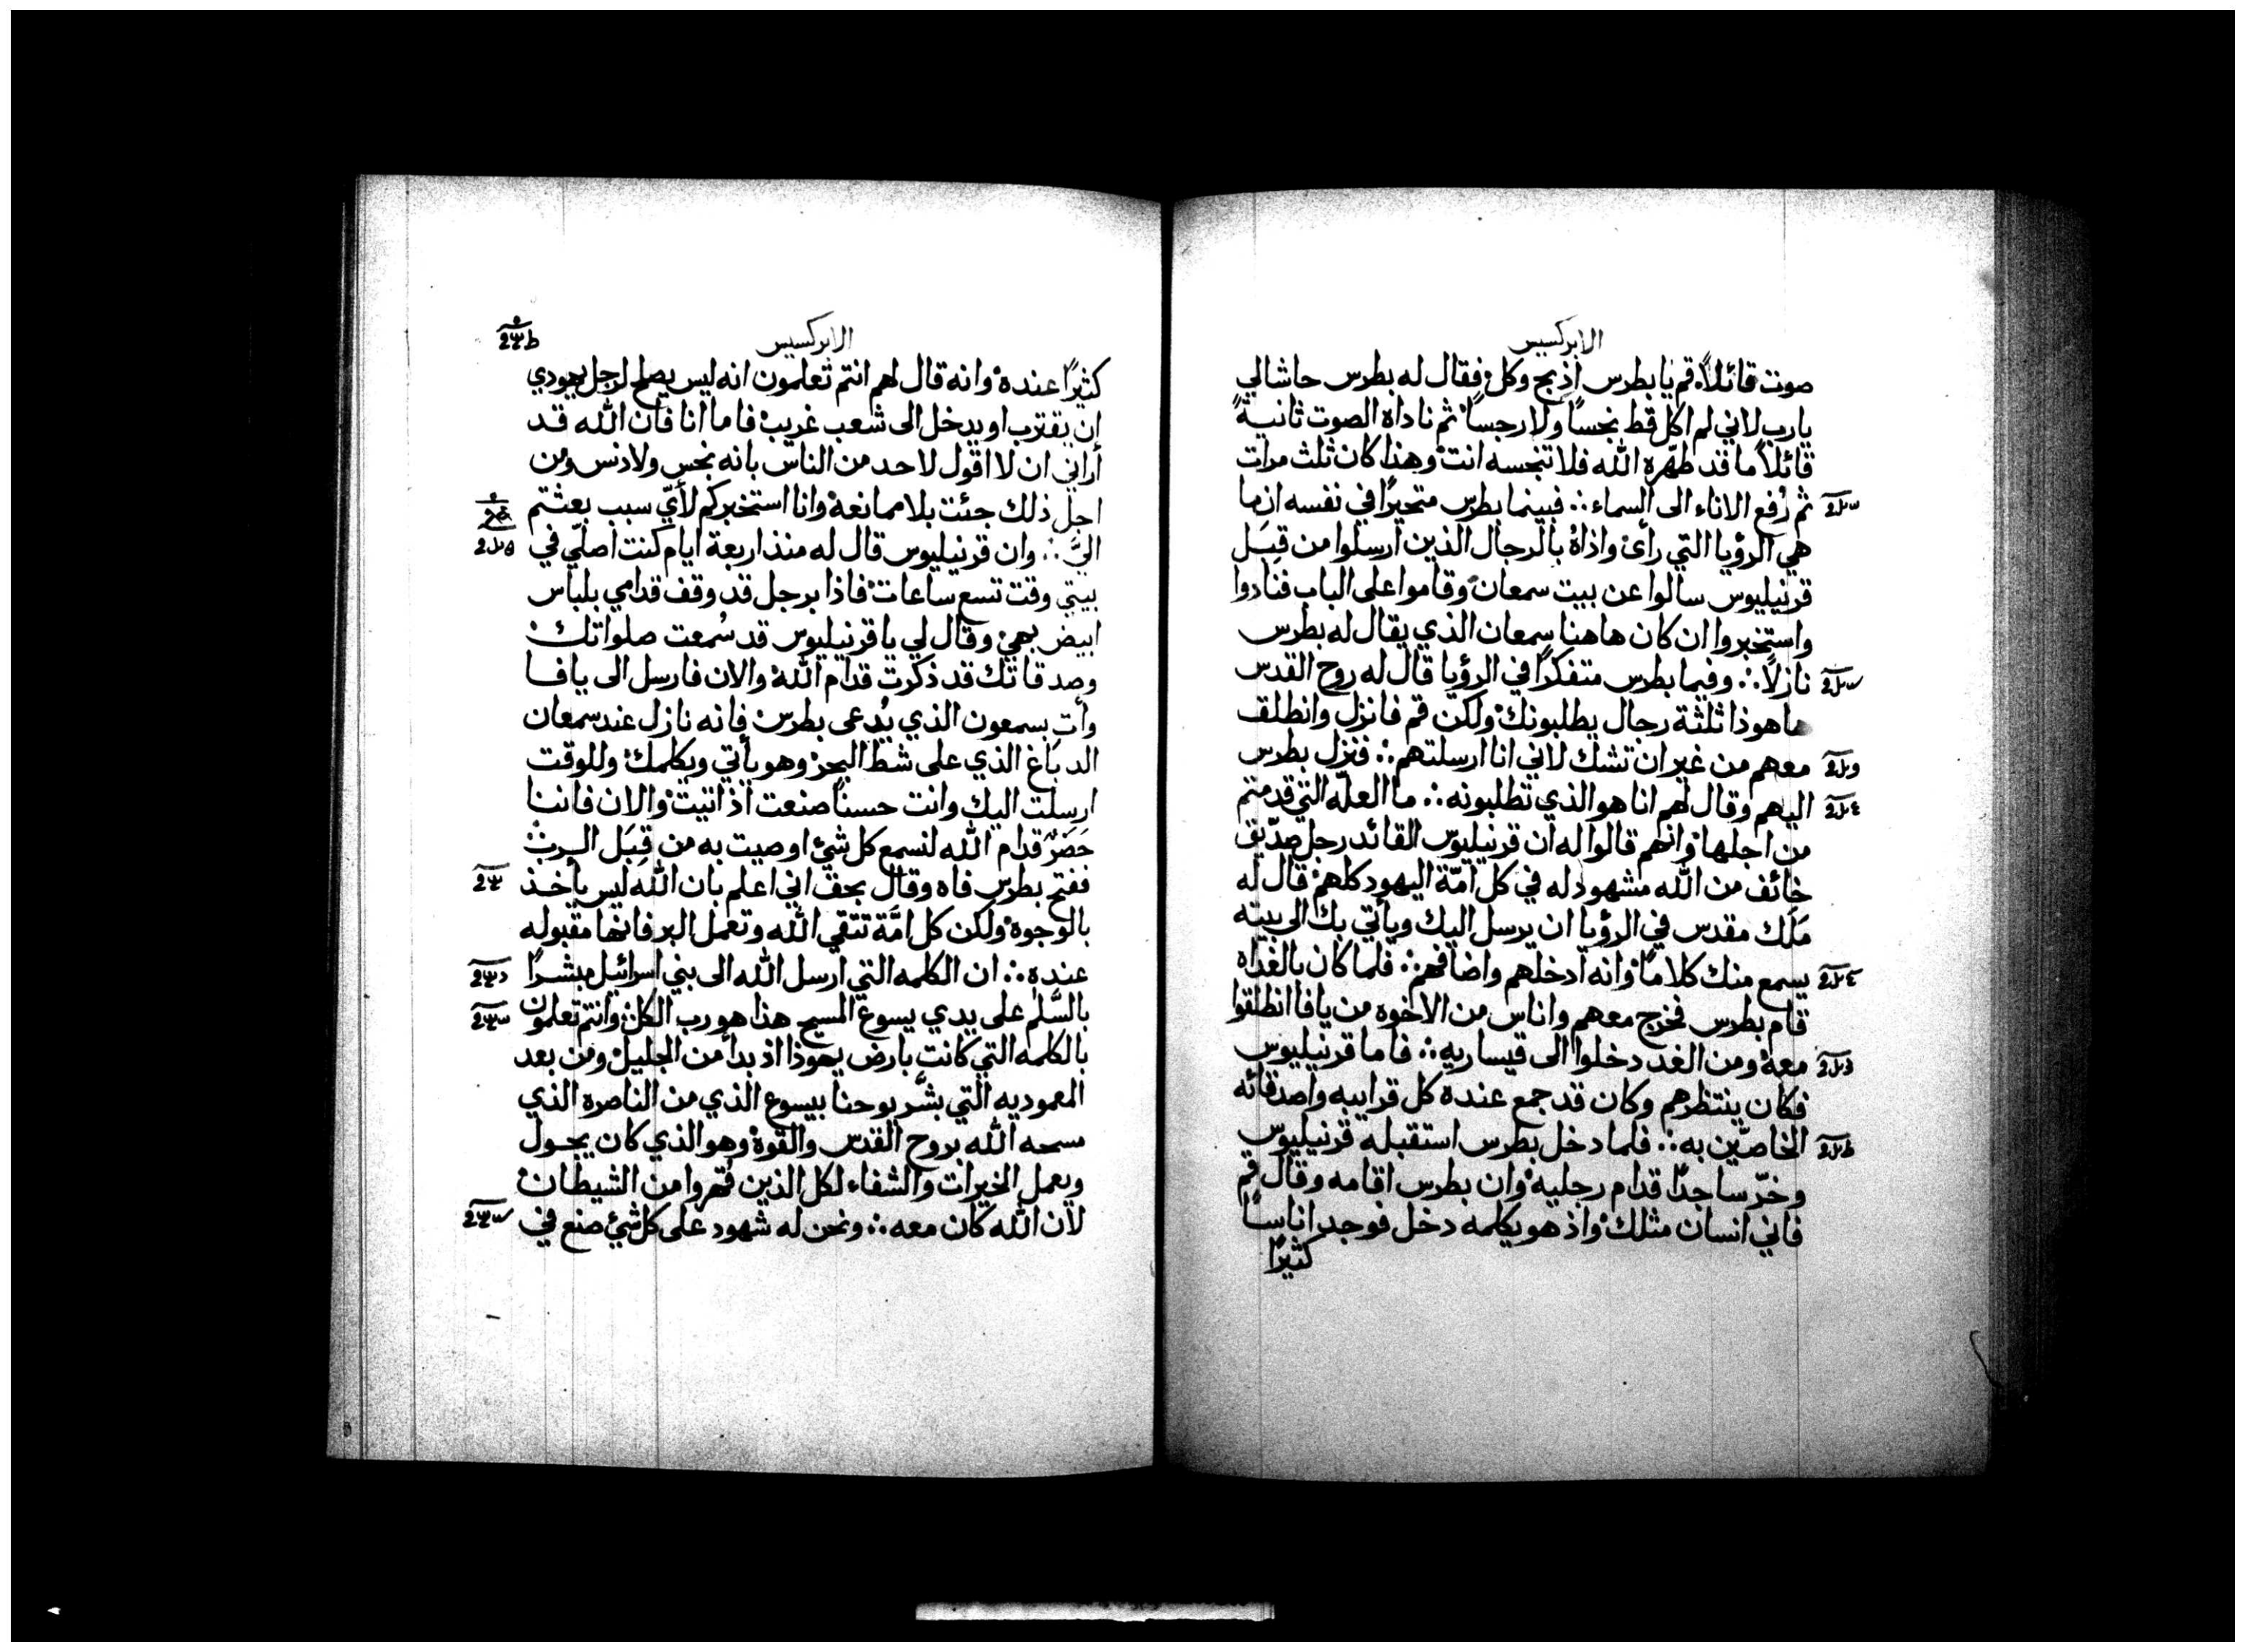 الابركسيس
صوت قائلاً قم يا بطرس اذبح وكل فقال له بطرس حاشالي
يارب لاني لم اكل قط نجسًا ولا رجسًا ثم ناداه الصوت ثانيةً
قائلاً ما قد طهّره الله فلا تنجسه انت وهذا كان ثلث مرات
ثم رُفع الاناء الى السماء ∴ فبينما بطرس متحيرًا في نفسه ان ما
هي الرؤيا التي رأى واذاهُ بالرجال الذين ارسلوا من قِبَل
قرنيليوس سالوا عن بيت سمعان وقاموا على الباب فنادوا
واستخبروا ان كان هاهنا سمعان الذي يقال له بطرس
نازلاً ∴ وفيما بطرس متفكرًا في الرؤيا قال له روح القدس
هاهوذا ثلثة رجال يطلبونك ولكن قم فانزل وانطلق
معهم من غير ان تشك لاني انا ارسلتهم ∴ فنزل بطرس
اليهم وقال لهم انا هو الذي تطلبونه ∴ ما العلّه التي قدمتم
من اجلها وانهم قالوا له ان قرنيليوس القائد رجل صدّيق
خائف من الله مشهود له في كل امّة اليهود كلهم قال له
مَلَك مقدس في الرؤيا ان يرسل اليك ويأتي بك الى بيته
يسمع منك كلامًا وانه ادخلهم واضافهم ∴ فلما كان بالغداه
قام بطرس فخرج معهم واناس من الاخوه من يافا انطلقوا
معه ومن الغد دخلوا الى قيساريه ∴ فاما قرنيليوس
فكان ينتظرهم وكان قد جمع عنده كل قرايبه واصدقائه
الخاصّين به ∴ فلما دخل بطرس استقبله قرنيليوس
وخرّ ساجدًا قدام رجليه وان بطرس اقامه وقال قم
فاني انسان مثلك واذ هو يكلمه دخل فوجد اناسًا
كثيرًا
الابركسيس
كثيرًا عنده وانه قال لهم انتم تعلمون انه ليس يصلح لرجل يهودي
ان يقترب او يدخل الى شعب غريب فاما انا فان الله قد
اراني ان لا اقول لاحد من الناس بانه نجس ولا دنس ومن
اجل ذلك جئت بلا ممانعة وانا استخبركم لأيّ سبب بعثتم
اليَّ ∴ وان قرنيليوس قال له منذ اربعة ايام كنت اصلّي في
بيتي وقت تسع ساعات فاذا برجل قد وقف قدامي بلباس
ابيض بهي وقال لي يا قرنيليوس قد سُمعت صلواتك
وصدقاتك قد ذكرت قدام الله والان فارسل الى يافا
وأت بسمعون الذي يُدعى بطرس فانه نازل عند سمعان
الدباغ الذي على شط البحر وهو يأتي ويكلمك وللوقت
ارسلت اليك وانت حسنًا صنعت اذ اتيت والان فاننا
حَضَرٌ قدام الله لنسمع كل شئ اوصيت به من قِبَل الرب
ففتح بطرس فاه وقال بحق اني اعلم بان الله ليس يأخذ
بالوجوه ولكن كل امَّة تتقي الله وتعمل البر فانها مقبوله
عنده ∴ ان الكلمه التي ارسل الله الى بني اسرائيل مبشرًا
بالسَّلم على يدي يسوع المسيح هذا هو رب الكل وانتم تعلمون
بالكلمه التي كانت بارض يهوذا اذ بدأ من الجليل ومن بعد
المعموديه التي بشَّر يوحنا بيسوع الذي من الناصره الذي
مسحه الله بروح القدس والقوة وهو الذي كان يجول
ويعمل الخيرات والشفاء لكل الذين قُهروا من الشيطان
لان الله كان معه ∴ ونحن له شهود على كل شئ صنع في